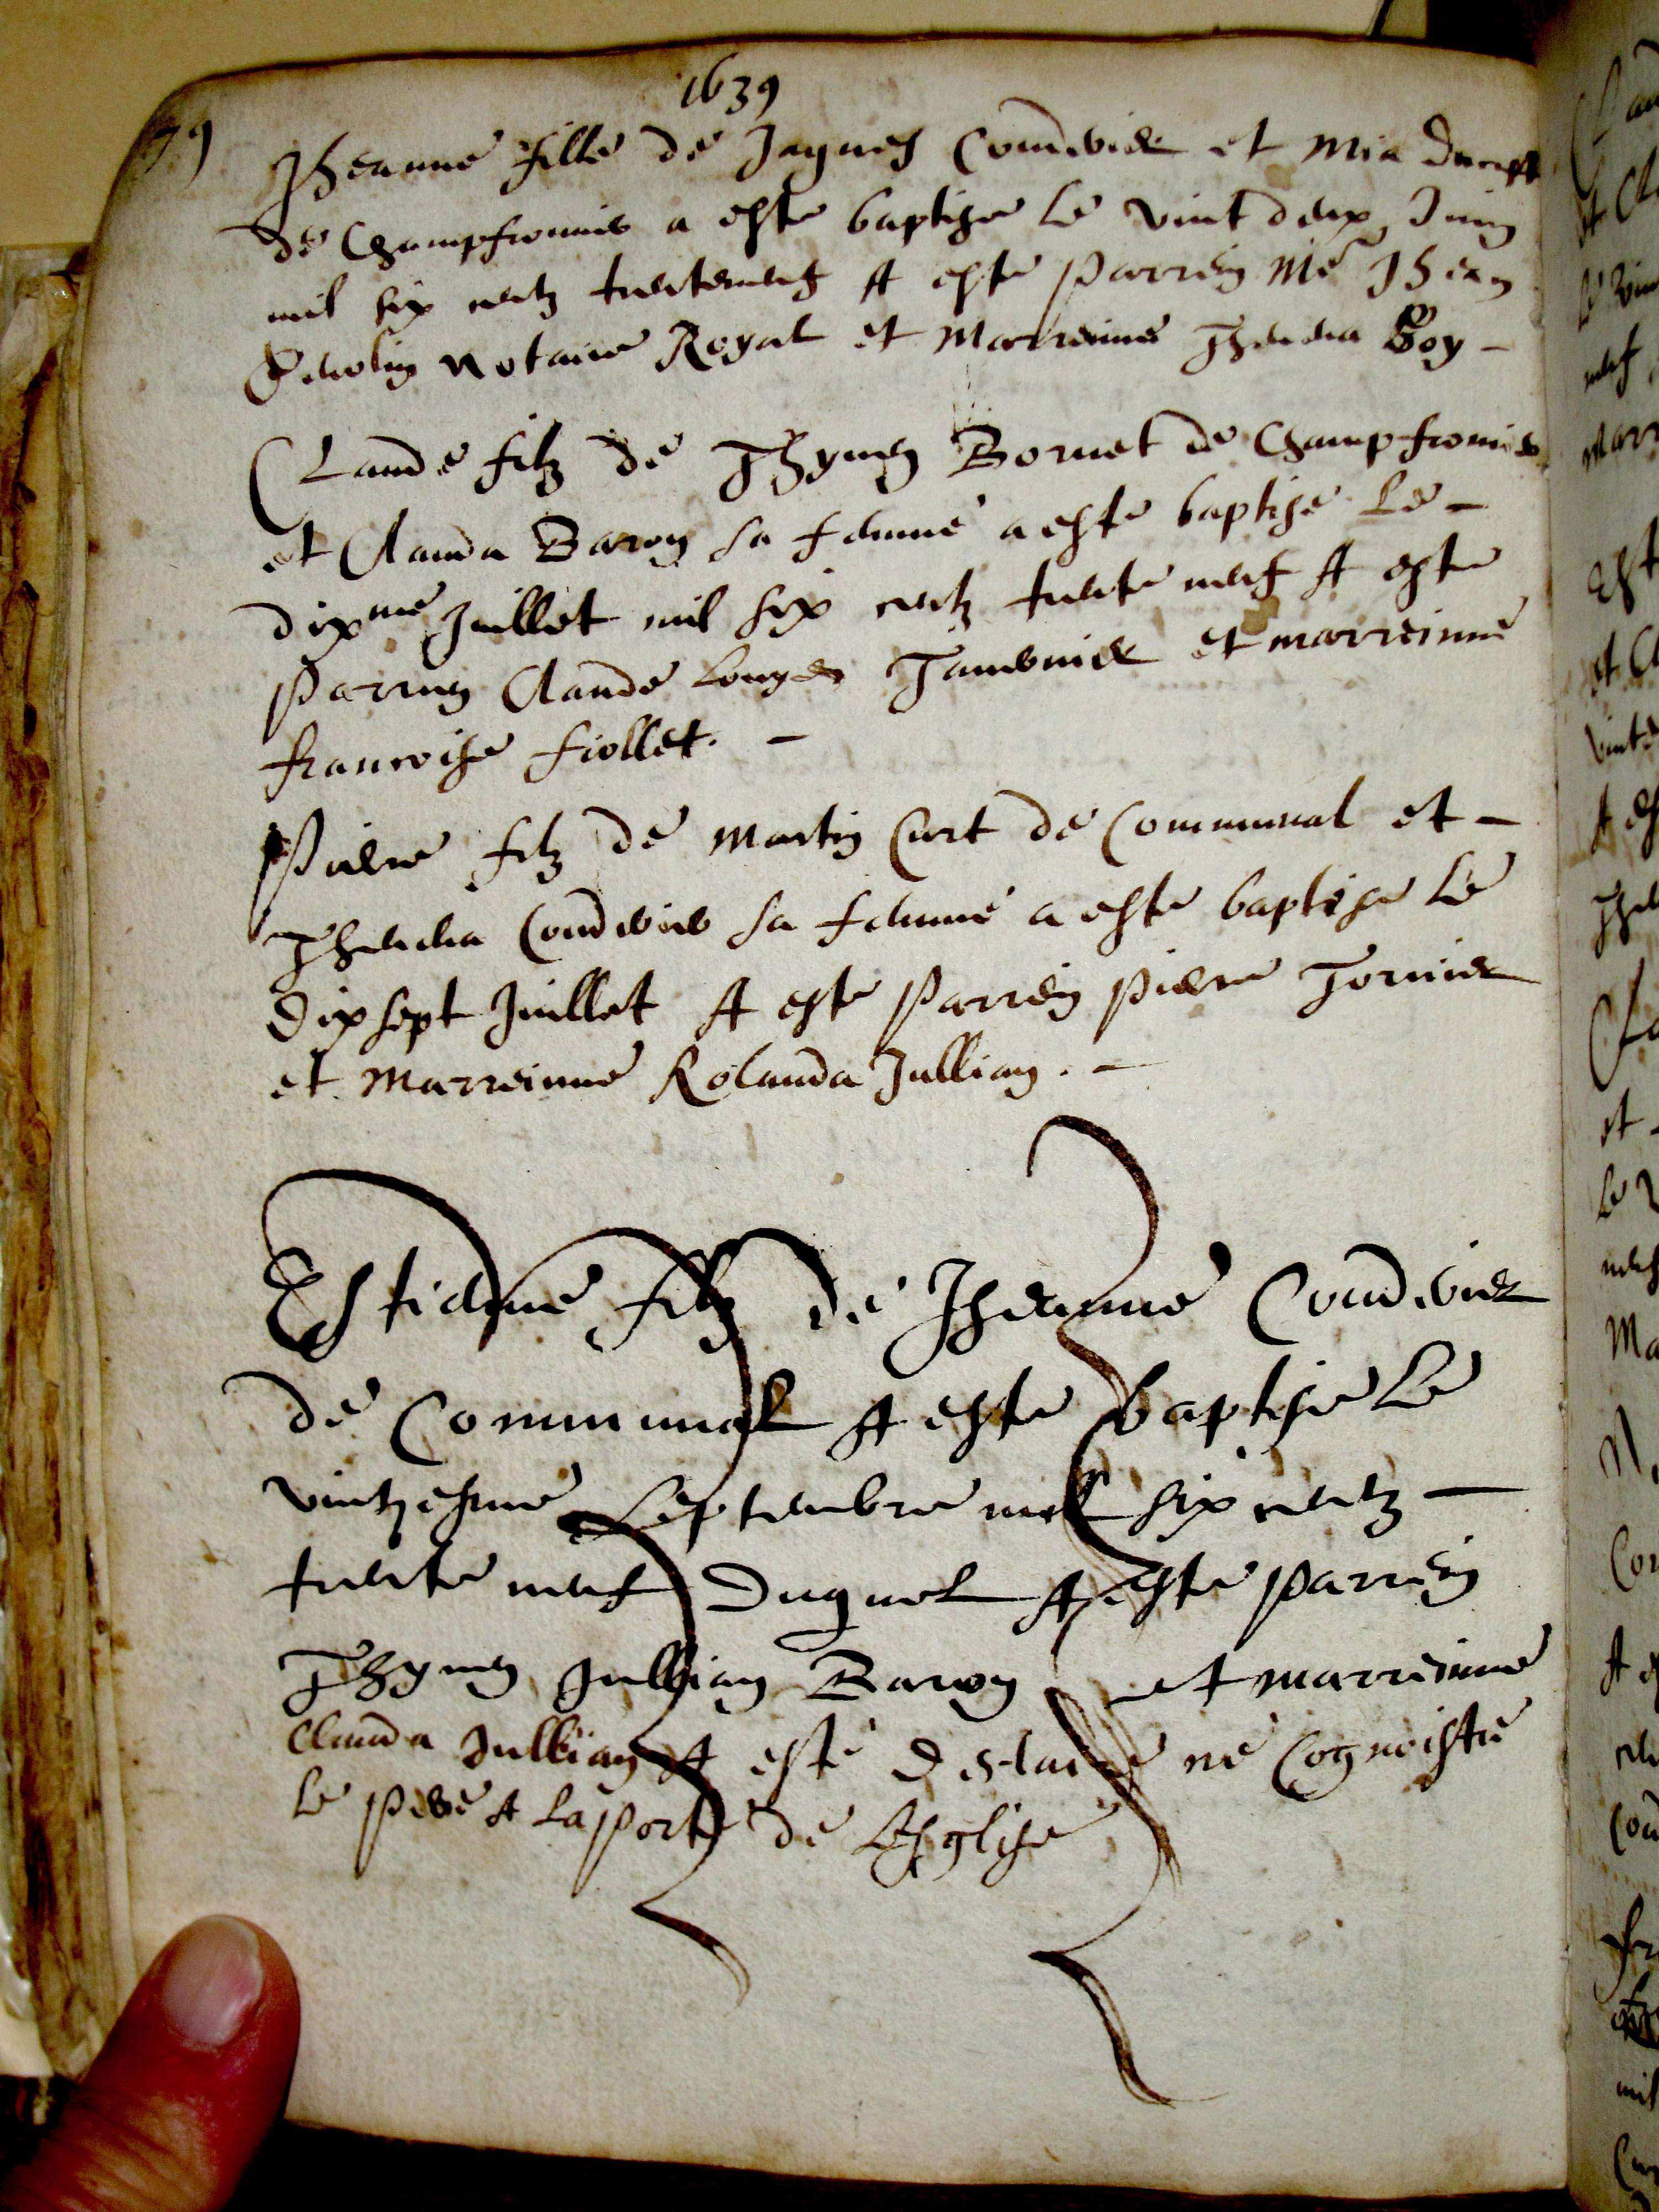 1639
79
Jheanne fille de Jaques Coudurier et Mia Ducrest
de Champfromier a este baptise le vint deux Juin
mil six centz trenteneuf A este parrein Me Jhean
notaire Royal et Marreinne Thevena Boy -
Claude filz de Thymen Bornet de Champfromier
et Clauda Baron sa femme a este baptise Le -
dixme Juillet mil six centz trente neuf A este
parrein Claude Tavernier et marreinne
francoise fiollet. -
Pierre filz de Martin Curt de Communal et -
Thevena Coudurier sa femme a este baptise Le
dix sept Juillet A este parrein pierre Tornier
et Marreinne Rolanda Jullian. -
Estienne filz de Jheanne Coudurier
de Communal A este baptise Le
vintzesme Septembre mil six centz -
trente neuf Duquel A este parrein
Thymen Jullian Baron et marreinne
Clauda Jullian A esté desclaire ne Cognoistre
le pere A La porte de LEsglise